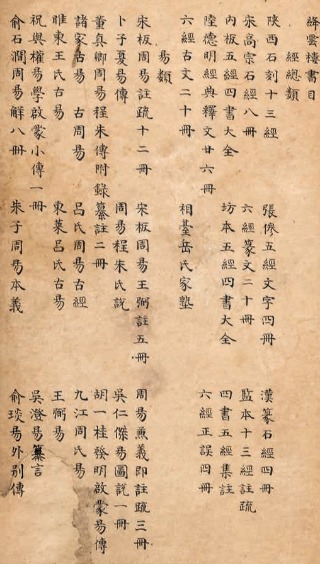 絳雲樓書目
經總類
陝西石刻十三經 張參五經文字四冊 漢篆石經四冊
宋高宗石經八冊 六經篆文二十冊 監本十三經註疏
內板五經四書大全 坊本五經四書大全 四書五經集註
陸德明經典釋文廿六冊 六經正誤四冊
六經古文二十冊 相臺岳氏家塾
易類
宋板周易註疏十二冊 宋板周易王弼註五冊 周易兼義即註疏三冊
卜子夏易傳 周易程朱氏說 吳仁傑易圖說一冊
董真卿周易程朱傳附錄纂註二冊 胡一桂發明啟蒙易傳
諸家古易 古周易 呂氏周易古經 九江周氏易
睢東王氏古易 東萊呂氏古易 王弼易
祝與權易學啟蒙小傳一冊 吳澄易纂言
俞石澗周易解八冊 朱子周易本義 俞琰易外別傳